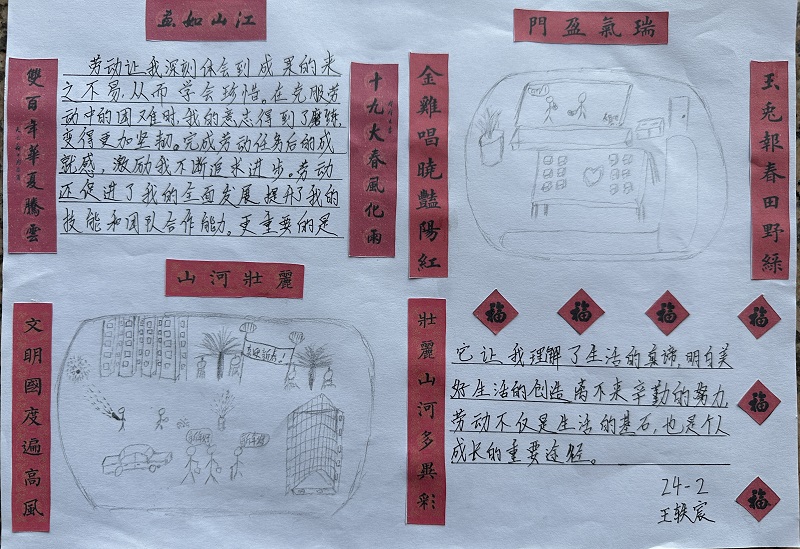 江山如画
雙百年華夏騰雲
十九大春風化雨
劳动让我深刻体会到成果的来
之不易,从而学会珍惜。在克服劳
动中的困难时,我的意志得到了磨练,
变得更加坚韧。完成劳动任务后的成
就感,激励我不断追求进步。劳动
还促进了我的全面发展,提升了我的
技能和团队合作能力。更重要的是
瑞氣盈門
金雞唱曉豔陽紅
玉兎報春田野綠
麗壯河山
文明國度遍高風
壯麗山河多異彩
福
福
福
福
福
福
它让我理解了生活的真谛,明白美
好生活的创造离不来辛勤的努力,
劳动不仅是生活的基石,也是个人
成长的重要途径。
24-2
王轶宸